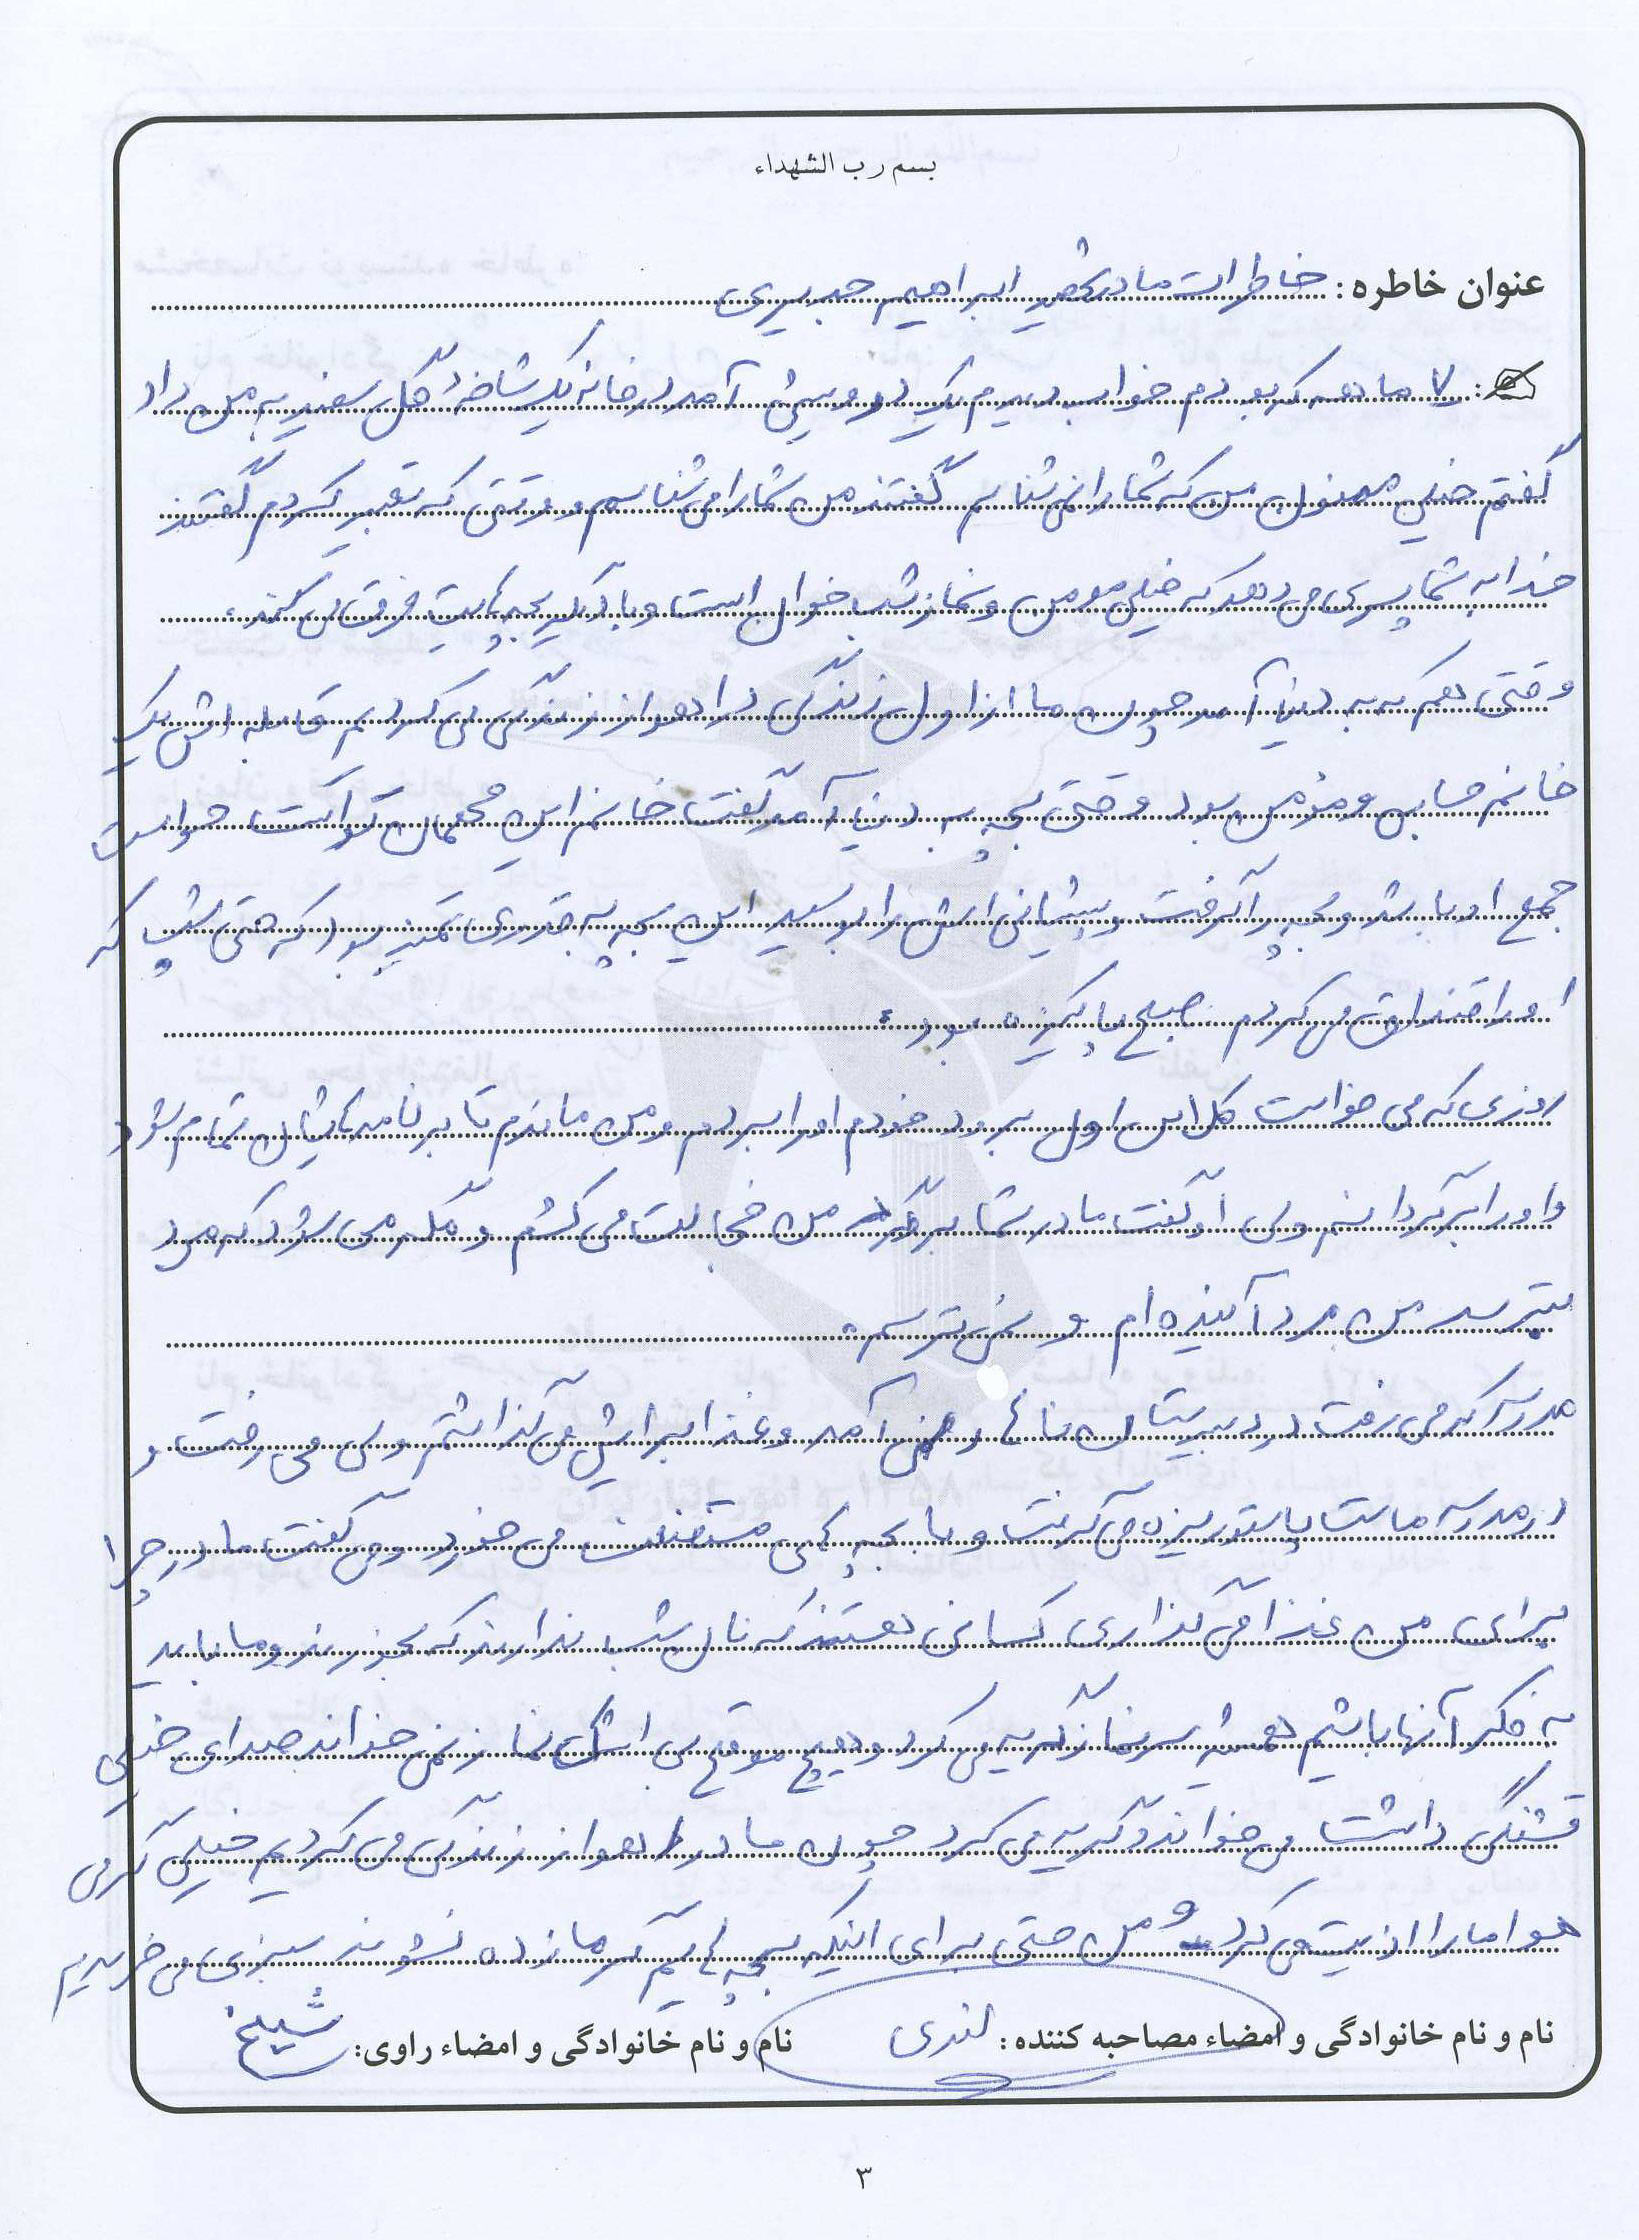 بسم رب الشهداء
عنوان خاطره: خاطرات مادر شهید ابراهیم جبریری
۷ ماهه که بودم خواب دیدم یک درویش آمد در خانه یک شاخه گل سفید به من داد
گفتم خیلی ممنون من که شما را نمی شناسم گفتند من شما را می شناسم و وقتی که تعبیر کردم گفتند
خدا به شما پسری می دهد که خیلی مومن و نماز شب خوان است و با دیگر بچه هایت فرق می کند.
وقتی هم که به دنیا آمد چون ما از اول زندگی در اهواز زندگی می کردیم قابله اش یک
خانم مسلمان و مؤمن بود وقتی بچه به دنیا آمد گفت خانم این مهمان تو است حواست
جمع او باشد و بچه را گرفت و پیشانی اش را بوسید این بچه به قدری تمیز بود که حتی شب که
او را قنداق می کردم صبح پاکیزه بود.
روزی که می خواست کلاس اول برود خودم او را بردم و من ماندم تا برنامه هایشان تمام شود
و او را برگردانم ولی او گفت مادر شما برگرد من خجالت می کشم و مگر می شود که مرد
بترسد من مرد آینده ام و نمی ترسم.
مدرسه که می رفت در دبیرستان ناهار نمی آمد و غذا برایش می گذاشتم ولی می رفت و
در مدرسه ماست پاستوریزه می گرفت و با بچه های مستضعف می خورد و می گفت مادر چرا
برای من غذا می گذاری کسانی هستند که نان شب ندارند که بخورند و ما باید
به فکر آنها باشیم همیشه سر نماز گریه می کرد و هیچ موقع بی اشک نماز نمی خواند صدای خیلی
قشنگی داشت می خواند و گریه می کرد چون ما در اهواز زندگی می کردیم خیلی گرمی
هوا ما را اذیت می کرد و من حتی برای اینکه بچه هایم گرما زده نشوند سبزی می خریدیم
نام و نام خانوادگی و امضاء مصاحبه کننده: لندی
نام و نام خانوادگی و امضاء راوی: شیخ
۳